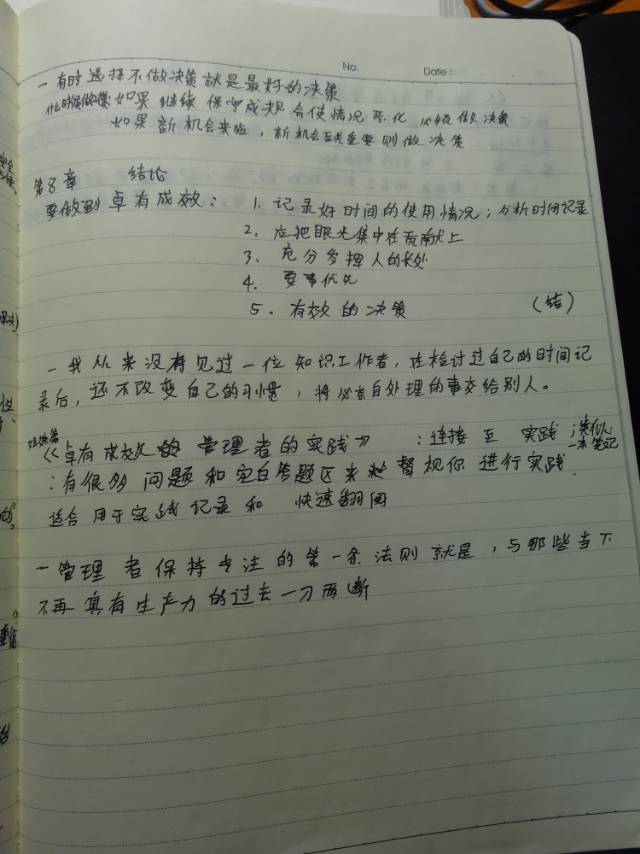 No. Date:
一 有时选择不做决策就是最好的决策
什么时候做决策 如果继续保守成规会使情况恶化 必须做决策
如果新机会来临，新机会至关重要则做决策
第8章 结论
要做到卓有成效： 1. 记录好时间的使用情况；分析时间记录
2. 应把眼光集中在贡献上
3. 充分发挥人的长处
4. 要事优先
5. 有效的决策 (结)
一 我从来没有见过一位知识工作者，在检讨过自己的时间记
录后，还不改变自己的习惯，将必亲自处理的事交给别人。
《卓有成效的管理者的实践》 ：连接至实践；类似
一本笔记
：有很多问题和空白答题区来督视你进行实践
适合用于实践记录和 快速翻阅
一 管理者保持专注的第一条法则就是，与那些当下
不再具有生产力的过去一刀两断